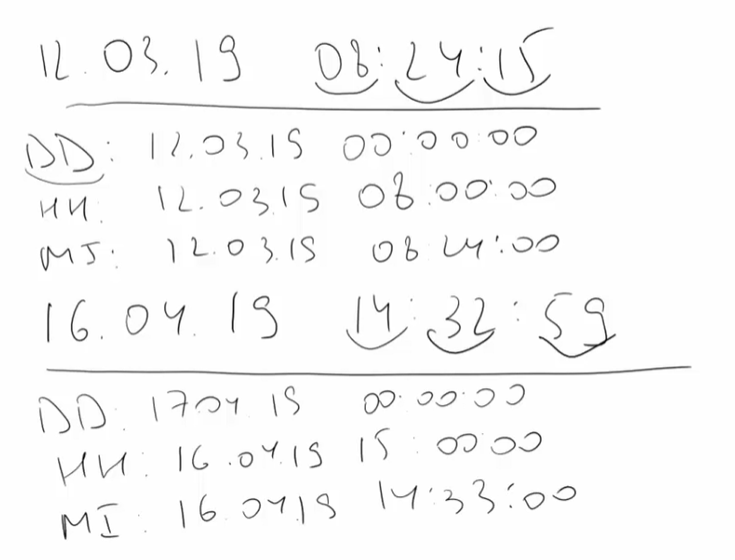 12.03.19 08:24:15
DD: 12.03.19 00:00:00
HH: 12.03.19 08:00:00
MI: 12.03.19 08 24:00
16.04.19 14:32:59
DD: 1704 19 00:00:00
HH: 16.04.19 15:00:00
MI: 16.04.19 14:33:00